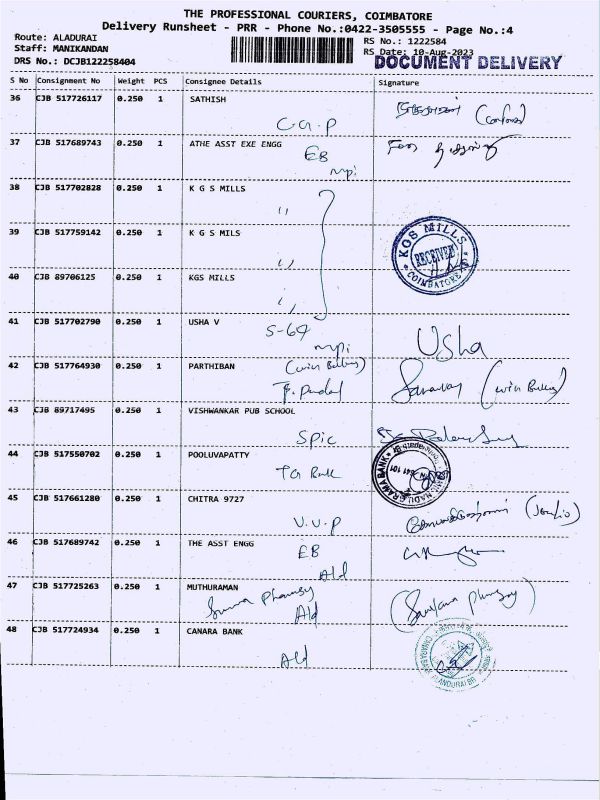 THE PROFESSIONAL COURIERS, COIMBATORE
Delivery Runsheet - PRR - Phone No.:0422-3505555 - Page No.:4
Route: ALADURAI RS No.: 1222584
Staff: MANIKANDAN RS Date: 10-Aug-2023
DRS No.: DCJB122258404 DOCUMENT DELIVERY
S No Consignment No Weight PCS Consignee Details Signature
36 CJB 517726117 0.250 1 SATHISH
C.G.P
37 CJB 517689743 0.250 1 ATHE ASST EXE ENGG
EB
mpi
38 CJB 517702828 0.250 1 K G S MILLS
39 CJB 517759142 0.250 1 K G S MILS
KGS MILLS
RECEIVED
COIMBATORE
40 CJB 89706125 0.250 1 KGS MILLS
41 CJB 517702790 0.250 1 USHA V
S-64
mpi
Usha
42 CJB 517764930 0.250 1 PARTHIBAN
43 CJB 89717495 0.250 1 VISHWANKAR PUB SCHOOL
Spic
44 CJB 517550702 0.250 1 POOLUVAPATTY
GRAMA BANK
641 101
45 CJB 517661280 0.250 1 CHITRA 9727
V.V.P
46 CJB 517689742 0.250 1 THE ASST ENGG
EB
Ald
47 CJB 517725263 0.250 1 MUTHURAMAN
Pharmacy
Ald
48 CJB 517724934 0.250 1 CANARA BANK
Ald